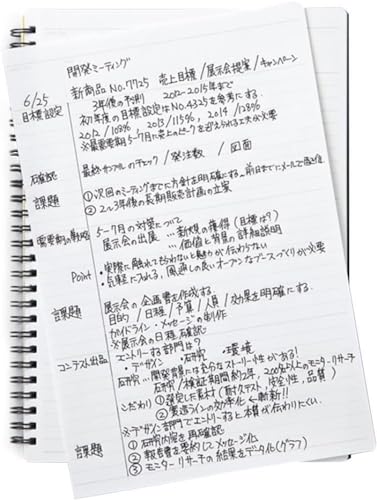 開発ミーティング
6/25 新商品No.7725 売上目標/展示会提案/キャンペーン
目標設定 3年後の予測 2012~2015年まで
初年度の目標設定はNo.4325を参考にする。
2012/108%, 2013/115%, 2014/128%
※最重要期5-7月に売上のピークを迎えられる工夫が必要
再確認 最終サンプルのチェック/発注数/図面
課題 ①次回のミーティングまでに方針を明確にする。前日までにメールで配信
②2~3年後の長期販売計画の立案
需要期の戦略 5-7月の対策について
展示会の出展 …新規の獲得(目標は?)
…価値と背景の詳細説明
Point ・実際に触れてもらわないと魅力が伝わらない
・気軽に入れる、風通しの良いオープンなブースづくりが必要
課題 展示会の企画書を作成する
目的/日程/予算/人員/効果を明確にする。
ガイドライン・メッセージの制作
※展示会の日程確認
コンテスト出品 エントリーする部門は?
・デザイン ・研究 ・環境
研究…開発背景には充分なストーリー性がある!
研究/検証期間約2年、200名以上のモニターリサーチ
こだわり ①選定した素材(耐久テスト、安全性、品質)
②製造ラインの効率化 ←斬新!!
※デザイン部門でエントリーすると本質が伝わりにくい。
課題 ①研究内容を再確認
②報告書を要約してメッセージ化
③モニターリサーチの結果をデータ化(グラフ)